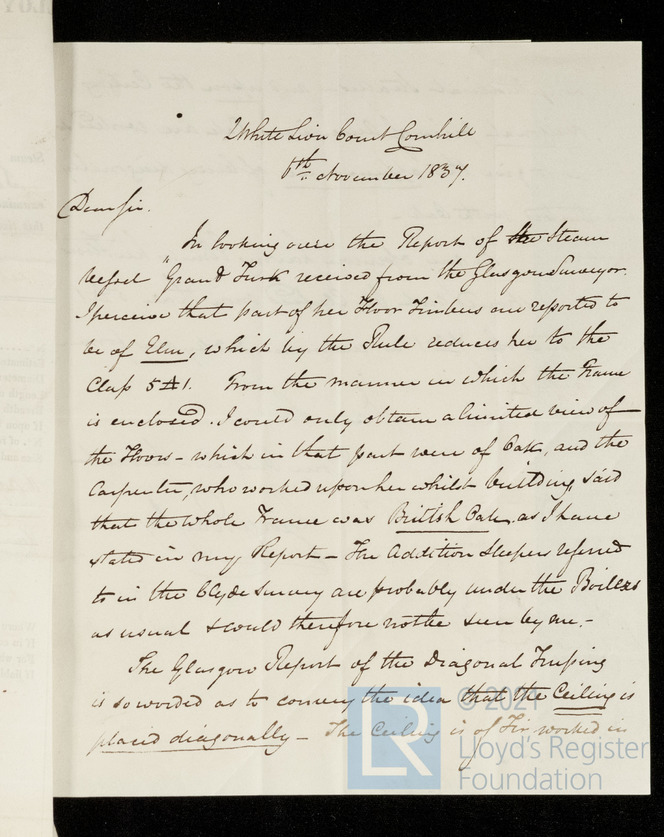 2 White Lion Court Cornhill
6th November 1837.
Dear Sir.
In looking over the Report of the Steam
Vessel "Grand Turk received from the Glasgow Surveyor
I perceive that part of her Floor Timbers are reported to
be of Elm, which by the Rule reduces her to the
Class 5 A1. From the manner in which the Frame
is enclosed. I could only obtain a limited view of
the Floors - which in that part were of Oak, and the
Carpenter, who worked upon her whilst building, said
that the whole Frame was British Oak, as I have
stated in my Report - The Addition Sleepers referred
to in the Clyde Survey are probably under the Boilers
as usual & could therefore not be seen by me. -
The Glasgow Report of the Diagonal Trussing
is so worded as to convey the idea that the Ceiling is
placed diagonally - The Ceiling is of Fir worked in
© 2021
LR
Lloyd's Register
Foundation